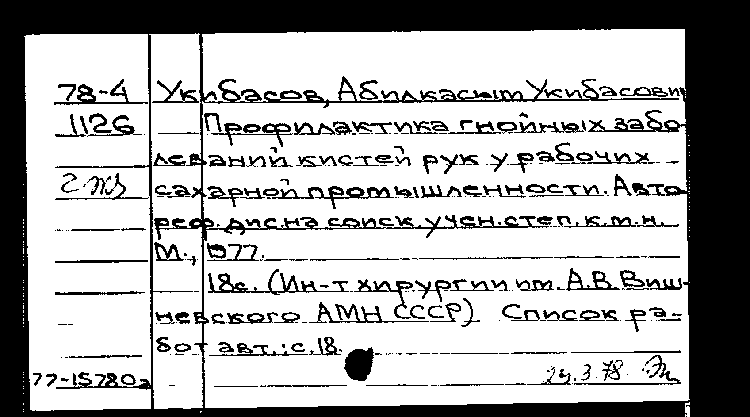 78-4 Укибасов, Абилкасым Укибасови
1126 Профилактика гнойных забо-
леваний кистей рук у рабочих
2 сахарной промышленности. Авто-
реф. дис. на соиск. учен. степ. к.м.н.
М., 1977.
18с. (Ин-т хирургии им. А.В. Виш-
невского АМН СССР) Список ра-
бот авт.: с. 18.
77-15780а 24.3.78